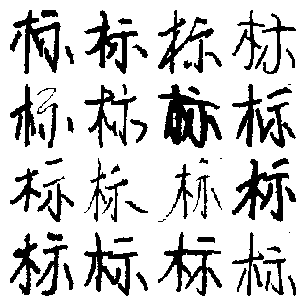 标标标标
标标标标
标标标标
标标标标